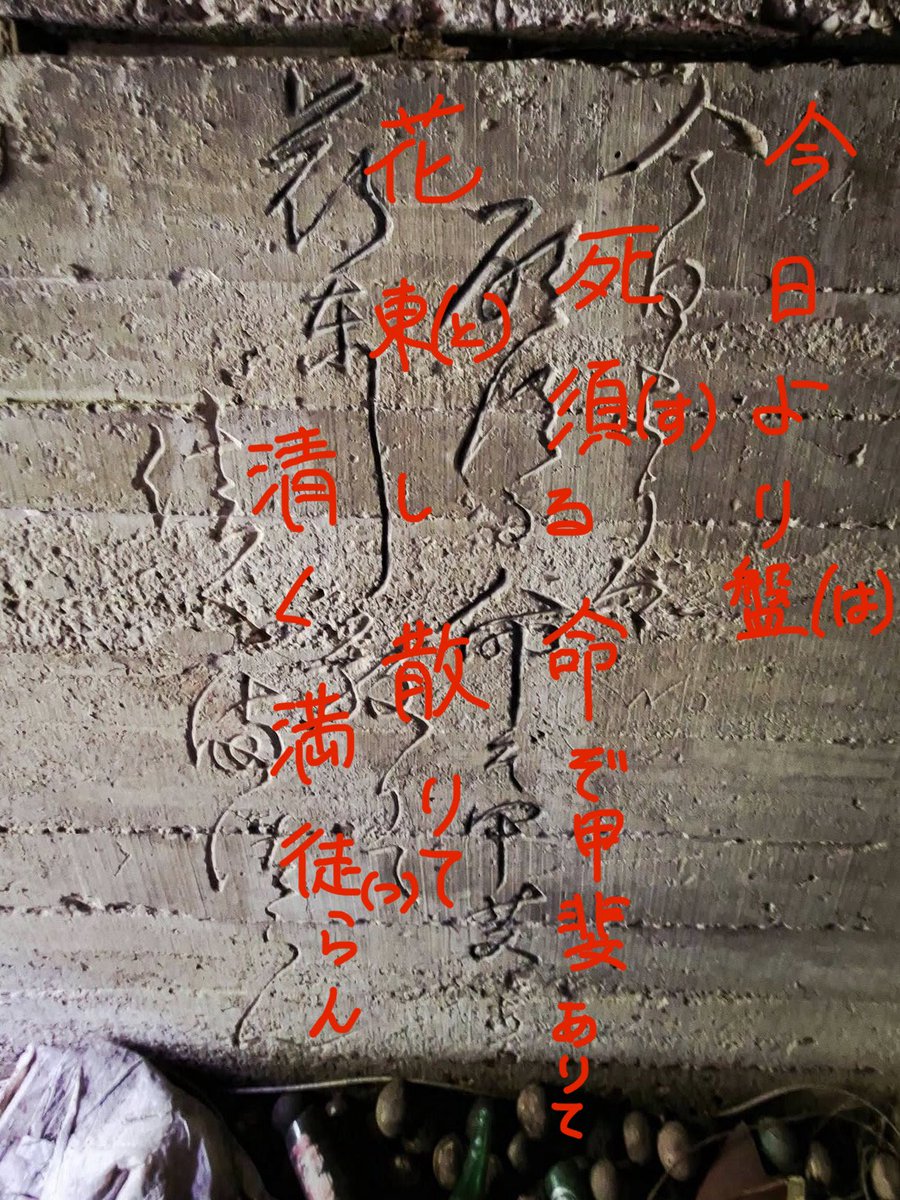 今日より盤(は)
死須(す)る命ぞ甲斐ありて
花東(と)し散りて
清く満徒(つ)らん